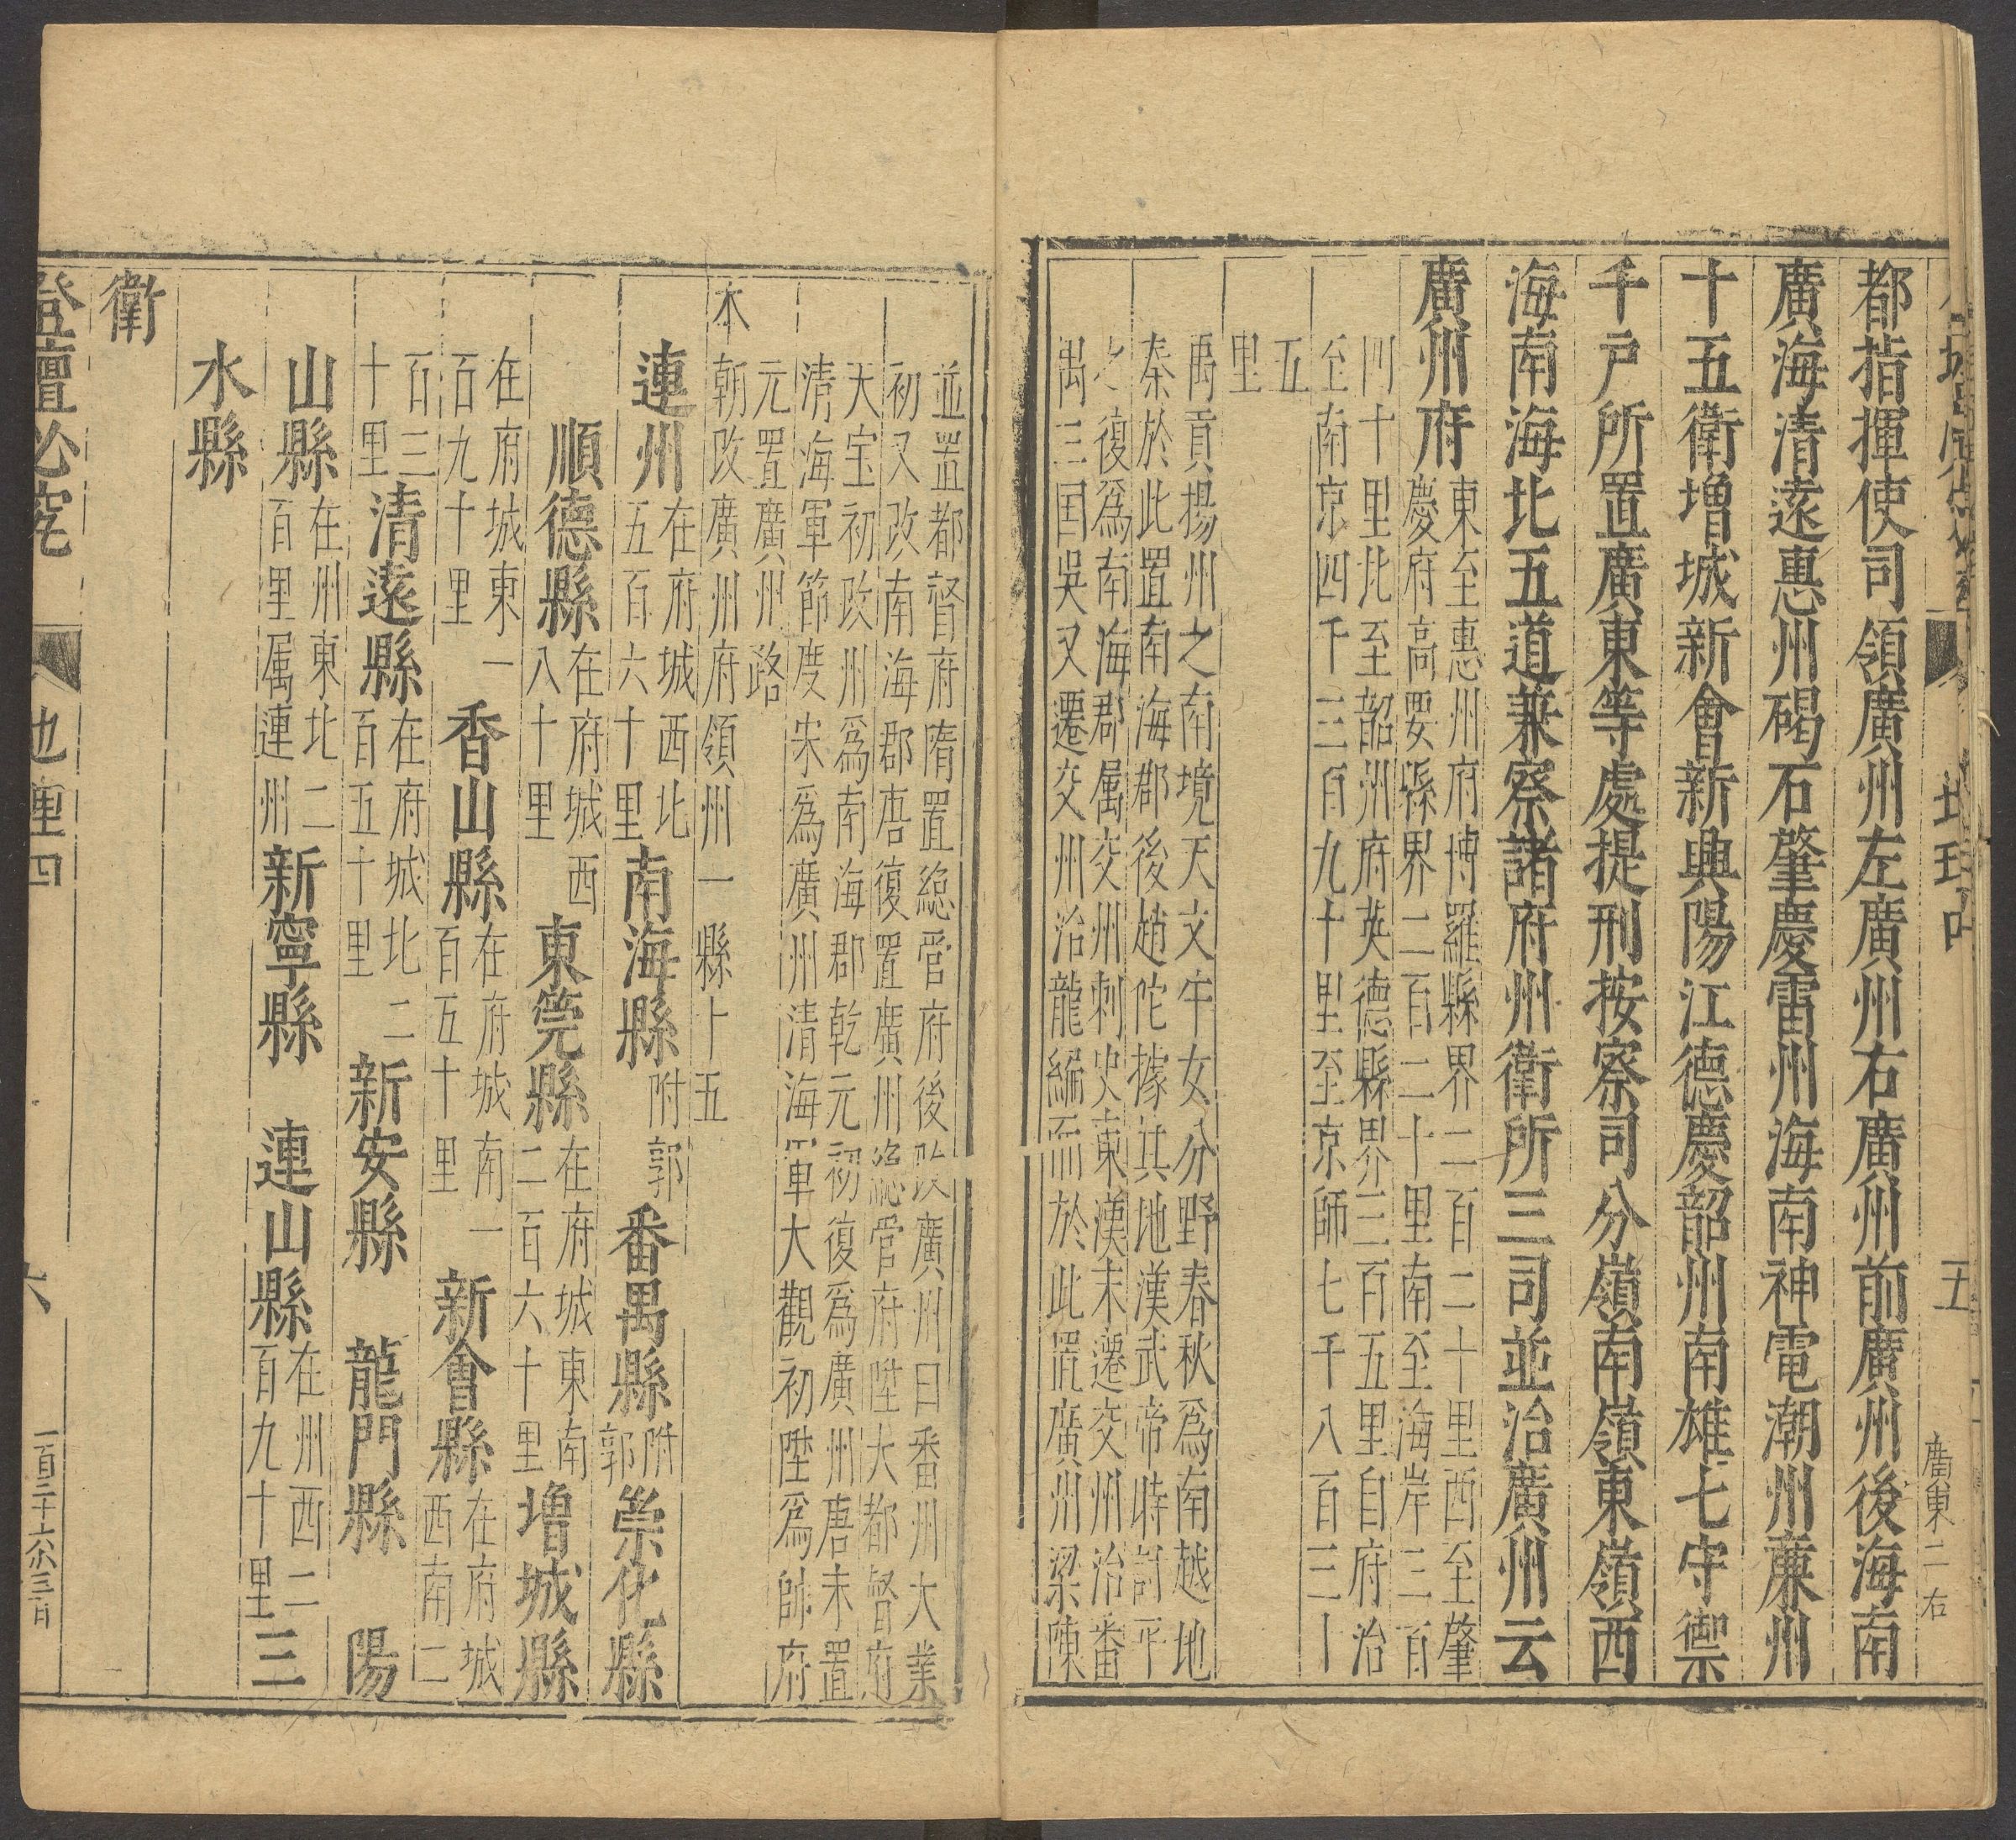 地理四
五
廣東二右
都指揮使司領廣州左廣州右廣州前廣州後海南
廣海清遠惠州碣石肇慶雷州海南神電潮州亷州
十五衛增城新會新興陽江德慶韶州南雄七守禦
千戸所置廣東等處提刑按察司分嶺南嶺東嶺西
海南海北五道兼察諸府州衛所三司並治廣州云
廣州府
東至惠州府博羅縣界二百二十里西至肇
慶府高要縣界二百二十里南至海岸三百
四十里北至韶州府英德縣界三百五里自府治
至南京四千三百九十里至京師七千八百三十
五
里
禹貢揚州之南境天文牛女分野春秋爲南越地
秦於此置南海郡後趙佗據其地漢武帝時討平
之復爲南海郡属交州刺史東漢末遷交州治番
禺三国吳又遷交州治龍編而於此置廣州梁陳
並置都督府隋置總管府後改廣州曰番州大業
初又改南海郡唐復置廣州總管府陞大都督府
天宝初改州爲南海郡乾元初復爲廣州唐末置
清海軍節度宋爲廣州清海軍大觀初陞爲帥府
元置廣州路
本朝改廣州府領州一縣十五
連州
在府城西北
五百六十里
南海縣
附郭
番禺縣
附
郭
從化縣
順德縣
在府城西
八十里
東莞縣
在府城東南
二百六十里
增城縣
在府城東一
百九十里
香山縣
在府城南一
百五十里
新會縣
在府城
西南二
百三
十里
清遠縣
在府城北二
百五十里
新安縣
龍門縣
陽
山縣
在州東北二
百里属連州
新寧縣
連山縣
在州西二
百九十里
三
水縣
衛
登壇必究
地理四
六
一百二十六尒三百